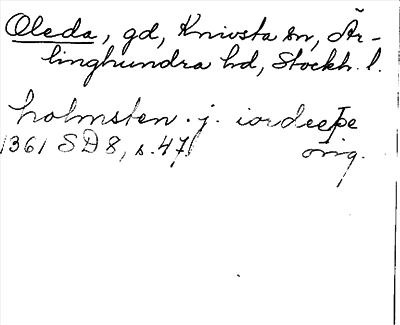 Oleda, gd, Knivsta sn, Är-
linghundra hd, Stockh. l.
holmsten . j . iordeeþe
1361 SD 8, s. 47
orig.